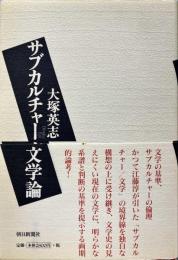 大塚英志
サブカルチャー文学論
文学の基準、
サブカルチャーの倫理
かつて江藤淳が引いた〝サブカル
チャー／文学〟の境界線を独自な
構想の上に受け継ぎ、文学史の見
えにくい現在の文学に、明らかな
系譜と判断の基準を提示する画期
的論考！
朝日新聞社
定価：本体2800円＋税